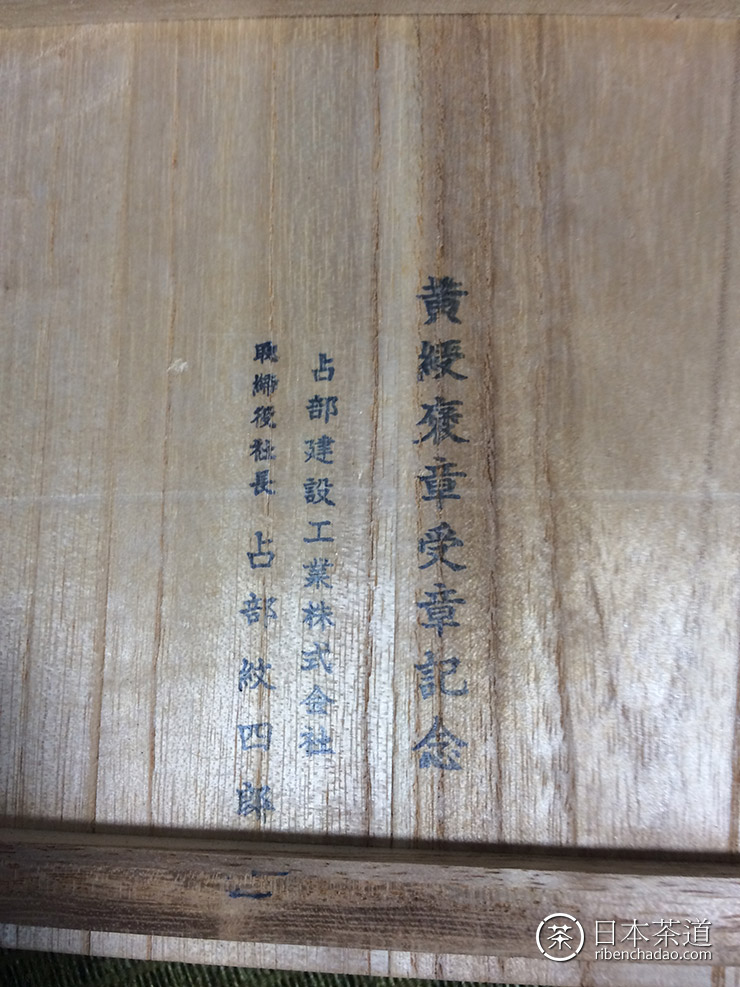 黄綬褒章受章記念
占部建設工業株式会社
取締役社長 占部紋四郎
茶 日本茶道
ribenchadao.com